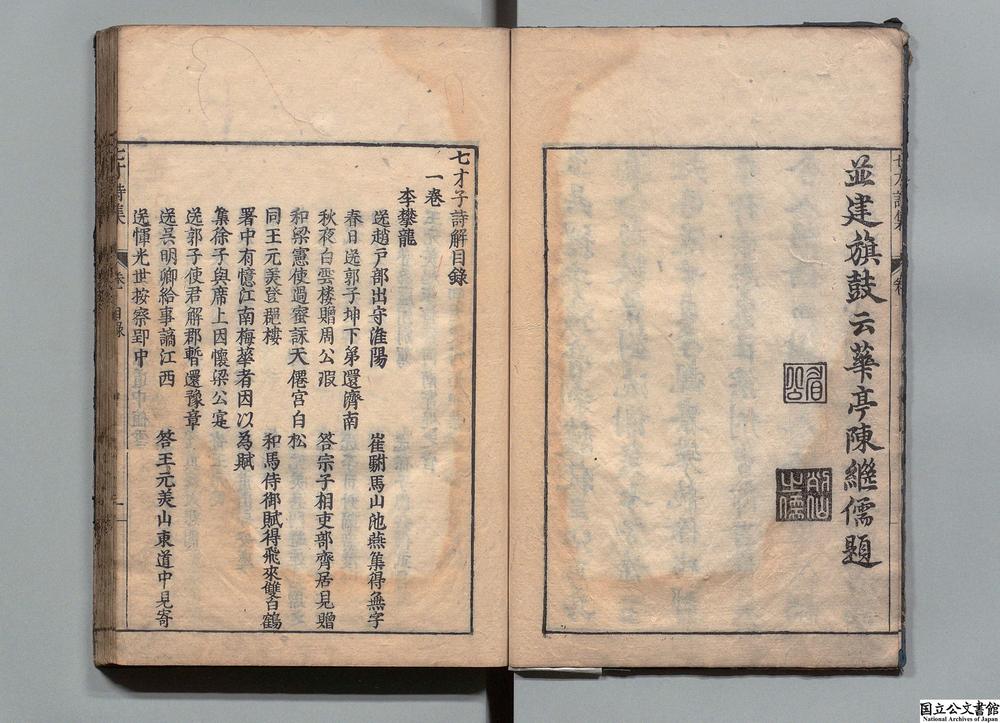 並建旗鼓云華亭陳繼儒題
眉公
七才子詩集
卷
七才子詩解目錄
一卷
李攀龍
送趙戶部出守淮陽
崔駙馬山池燕集得無字
春日送郭子坤下第還濟南
秋夜白雲樓贈周公瑕
答宗子相吏部齋居見贈
和梁憲使過蜜詠天僊宮白松
同王元美登郡樓
和馬侍御賦得飛來雙白鶴
署中有憶江南梅華者因以為賦
集徐子與席上因懷梁公寔
送郭子使君解郡暫還豫章
送吳明卿給事謫江西
答王元美山東道中見寄
送惲光世按察郢中
七才子詩集
卷一
目錄